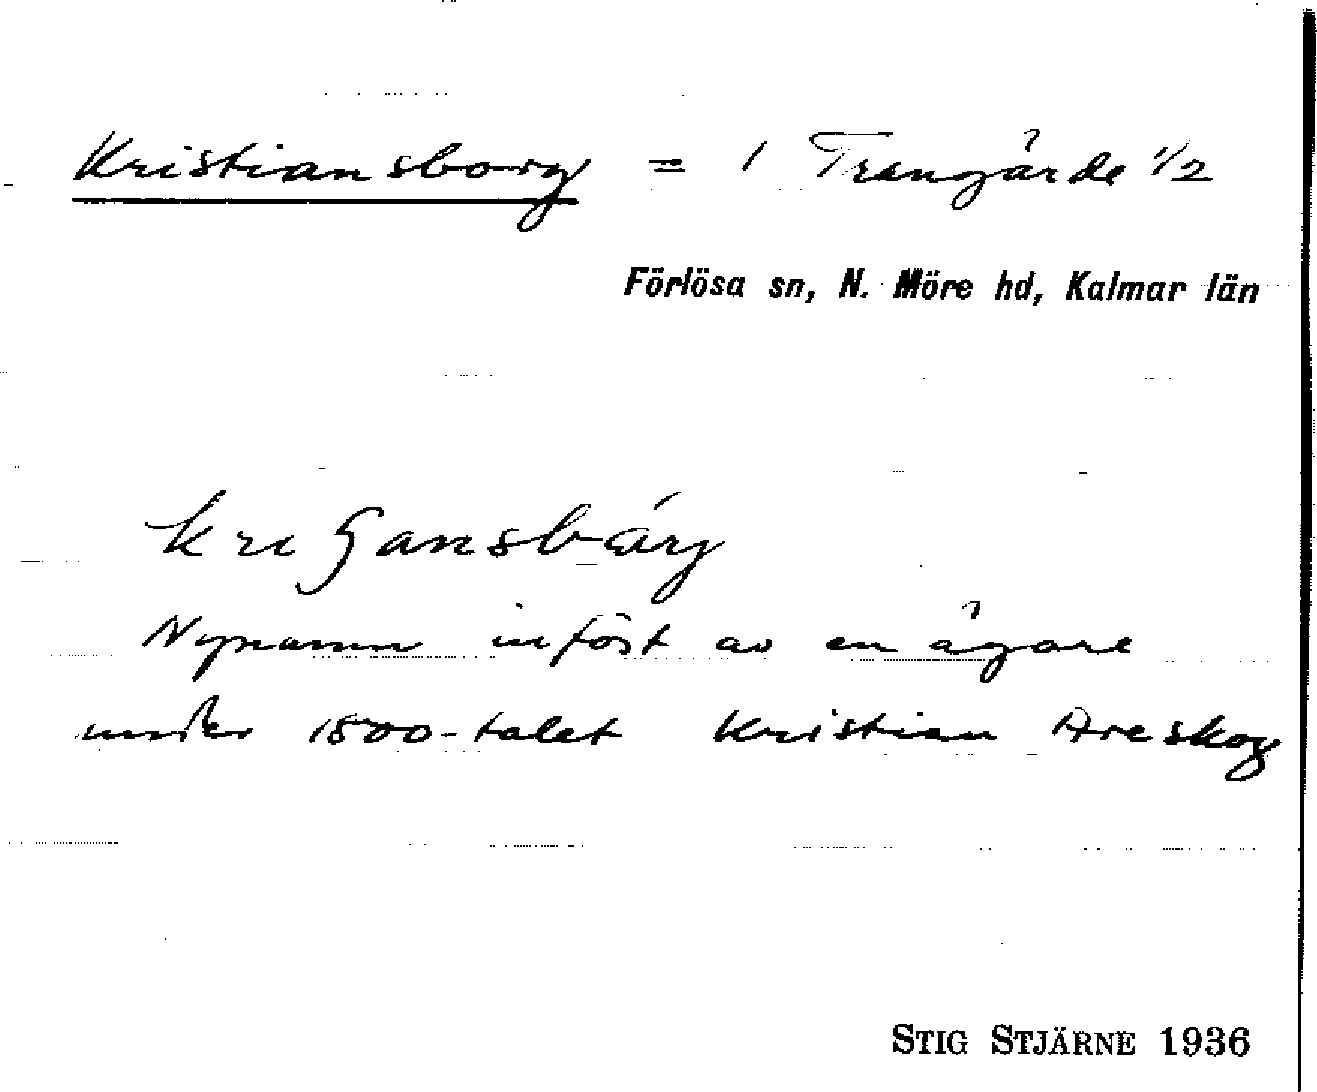 Kristiansborg = 1 Trangärde 1/2
Förlösa sn, N. Möre hd, Kalmar län
kriʃansbárj
Nynamn infört av en ägare
under 1800-talet Kristian Areskog
STIG STJÄRNE 1936